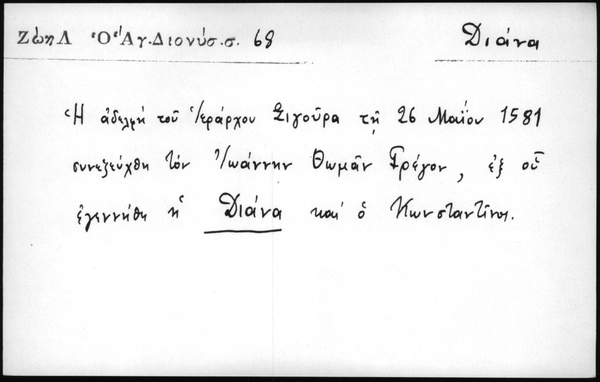 Ζώη Λ Ὁ Ἅγ. Διονύσ. σ. 68 Διάνα
Ἡ ἀδελφή τοῦ Ἱεράρχου Σιγούρα τῇ 26 Μαΐου 1581
συνεζεύχθη τόν Ἰωάννην Θωμᾶν Γρέγον, ἐξ οὗ
ἐγεννήθη ἡ Διάνα καί ὁ Κωνσταντῖνος.